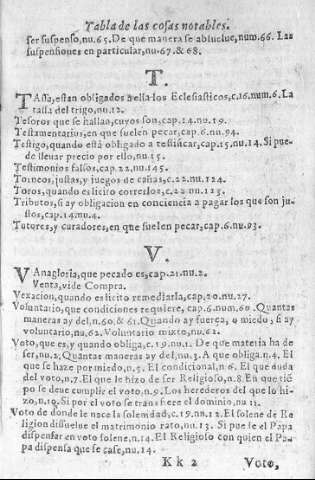 Tabla de las cosas notables.
ser suspenso, nu. 65. De que manera se absuelue, num. 66. Las
suspensiones en particular, nu. 67. & 68.
T.
TAssa, estan obligados a ella los Eclesiasticos, c. 16. num. 6. La
tassa del trigo, nu. 12.
Tesoros que se hallan, cuyos son, cap. 14. nu. 19.
Testamentarios, en que suelen pecar, cap. 6. nu. 94.
Testigo, quando està obligado a testificar, cap. 15. nu. 14. Si pue-
de lleuar precio por ello, nu. 15.
Testimonios falsos, cap. 22. nu. 145.
Torneos, justas, y juegos de cañas, c. 22. nu. 124.
Toros, quando es licito correrlos, c. 22. nu. 123.
Tributos, si ay obligacion en conciencia a pagar los que son ju-
stos, cap. 14. nu. 4.
Tutores, y curadores, en que suelen pecar, cap. 6. nu. 93.
V.
VAnagloria, que pecado es, cap. 21. nu. 2.
Venta, vide Compra.
Vexacion, quando es licito remediarla, cap. 20. nu. 27.
Voluntario, que condiciones requiere, cap. 6. num. 60. Quantas
maneras ay del, n. 60. & 61. Quando ay fuerça, o miedo, si ay
voluntario, nu. 62. Voluntario mixto, nu. 62.
Voto, que es, y quando obliga, c. 19. nu. 1. De que materia ha de
ser, nu. 2. Quantas maneras ay del, nu. 3. A que obliga, n. 4. El
que se haze por miedo, n. 5. El condicional, n. 6. El que duda
del voto, n. 7. El que le hizo de ser Religioso, n. 8. En que tiē
po se deue cumplir el voto, n. 9. Los herederos del que lo hi-
zo, n. 10. Si por el voto se transfiere el dominio, nu. 11.
Voto de donde le nace la solenidad, c. 19. nu. 12. El solene de Re
ligion dissuelue el matrimonio rato, nu. 13. Si puede el Papa
dispensar en voto solene, n. 14. El Religioso con quien el Pa-
pa dispensa que se case, nu. 14.
Kk 2 Voto,